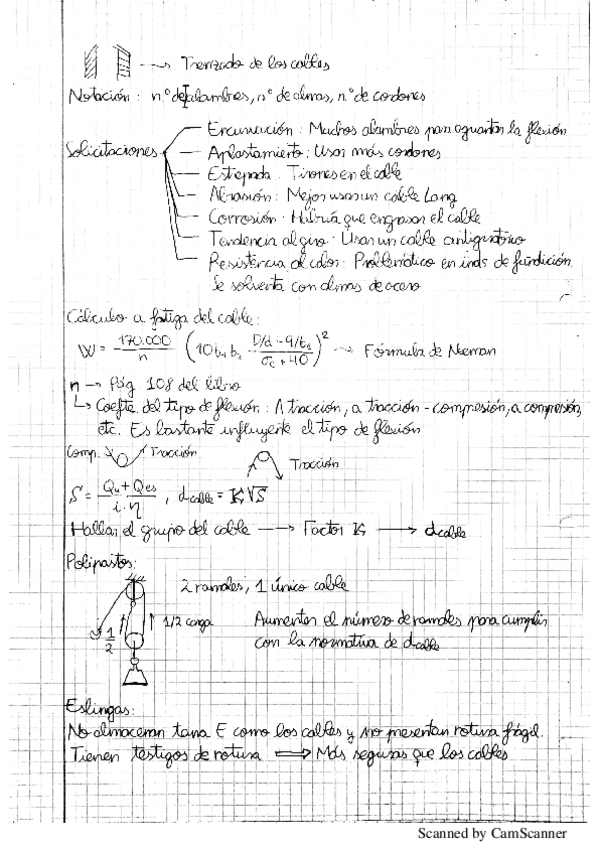 ---> Trenzado de los cables
Notación: nº de alambres, nº de almas, nº de cordones
Solicitaciones
Encurvación: Muchos alambres para aguantar la flexión
Aplastamiento: Usar más cordones
Estrepada: Tirones en el cable
Abrasión: Mejor usar un cable Lang
Corrosión: Habría que engrasar el cable
Tendencia al giro: Usar un cable antigiratorio
Resistencia al calor: Problemático en inds de fundición.
Se solventa con almas de acero
Cálculo a fatiga del cable:
W = 170.000/n (10 b₁ b₂ (D/d - 9/b₂)/(σt + 40))² → Fórmula de Nieman
n → Pág 108 del libro
↳ Coefte del tipo de flexión: A tracción, a tracción - compresión, a compresión,
etc. Es bastante influyente el tipo de flexión
Comp. Tracción
Tracción
S = (Qu + Qes)/(i · η), dcable = K√S
Hallar el grupo del cable → Factor K → dcable
Polipastos:
2 ramales, 1 único cable
1/2 carga
1/2
Aumentar el número de ramales para cumplir
con la normativa de dcable
Eslingas:
No almacenan tanta E como los cables y no presentan rotura frágil.
Tienen testigos de rotura ⇒ Más seguras que los cables
Scanned by CamScanner